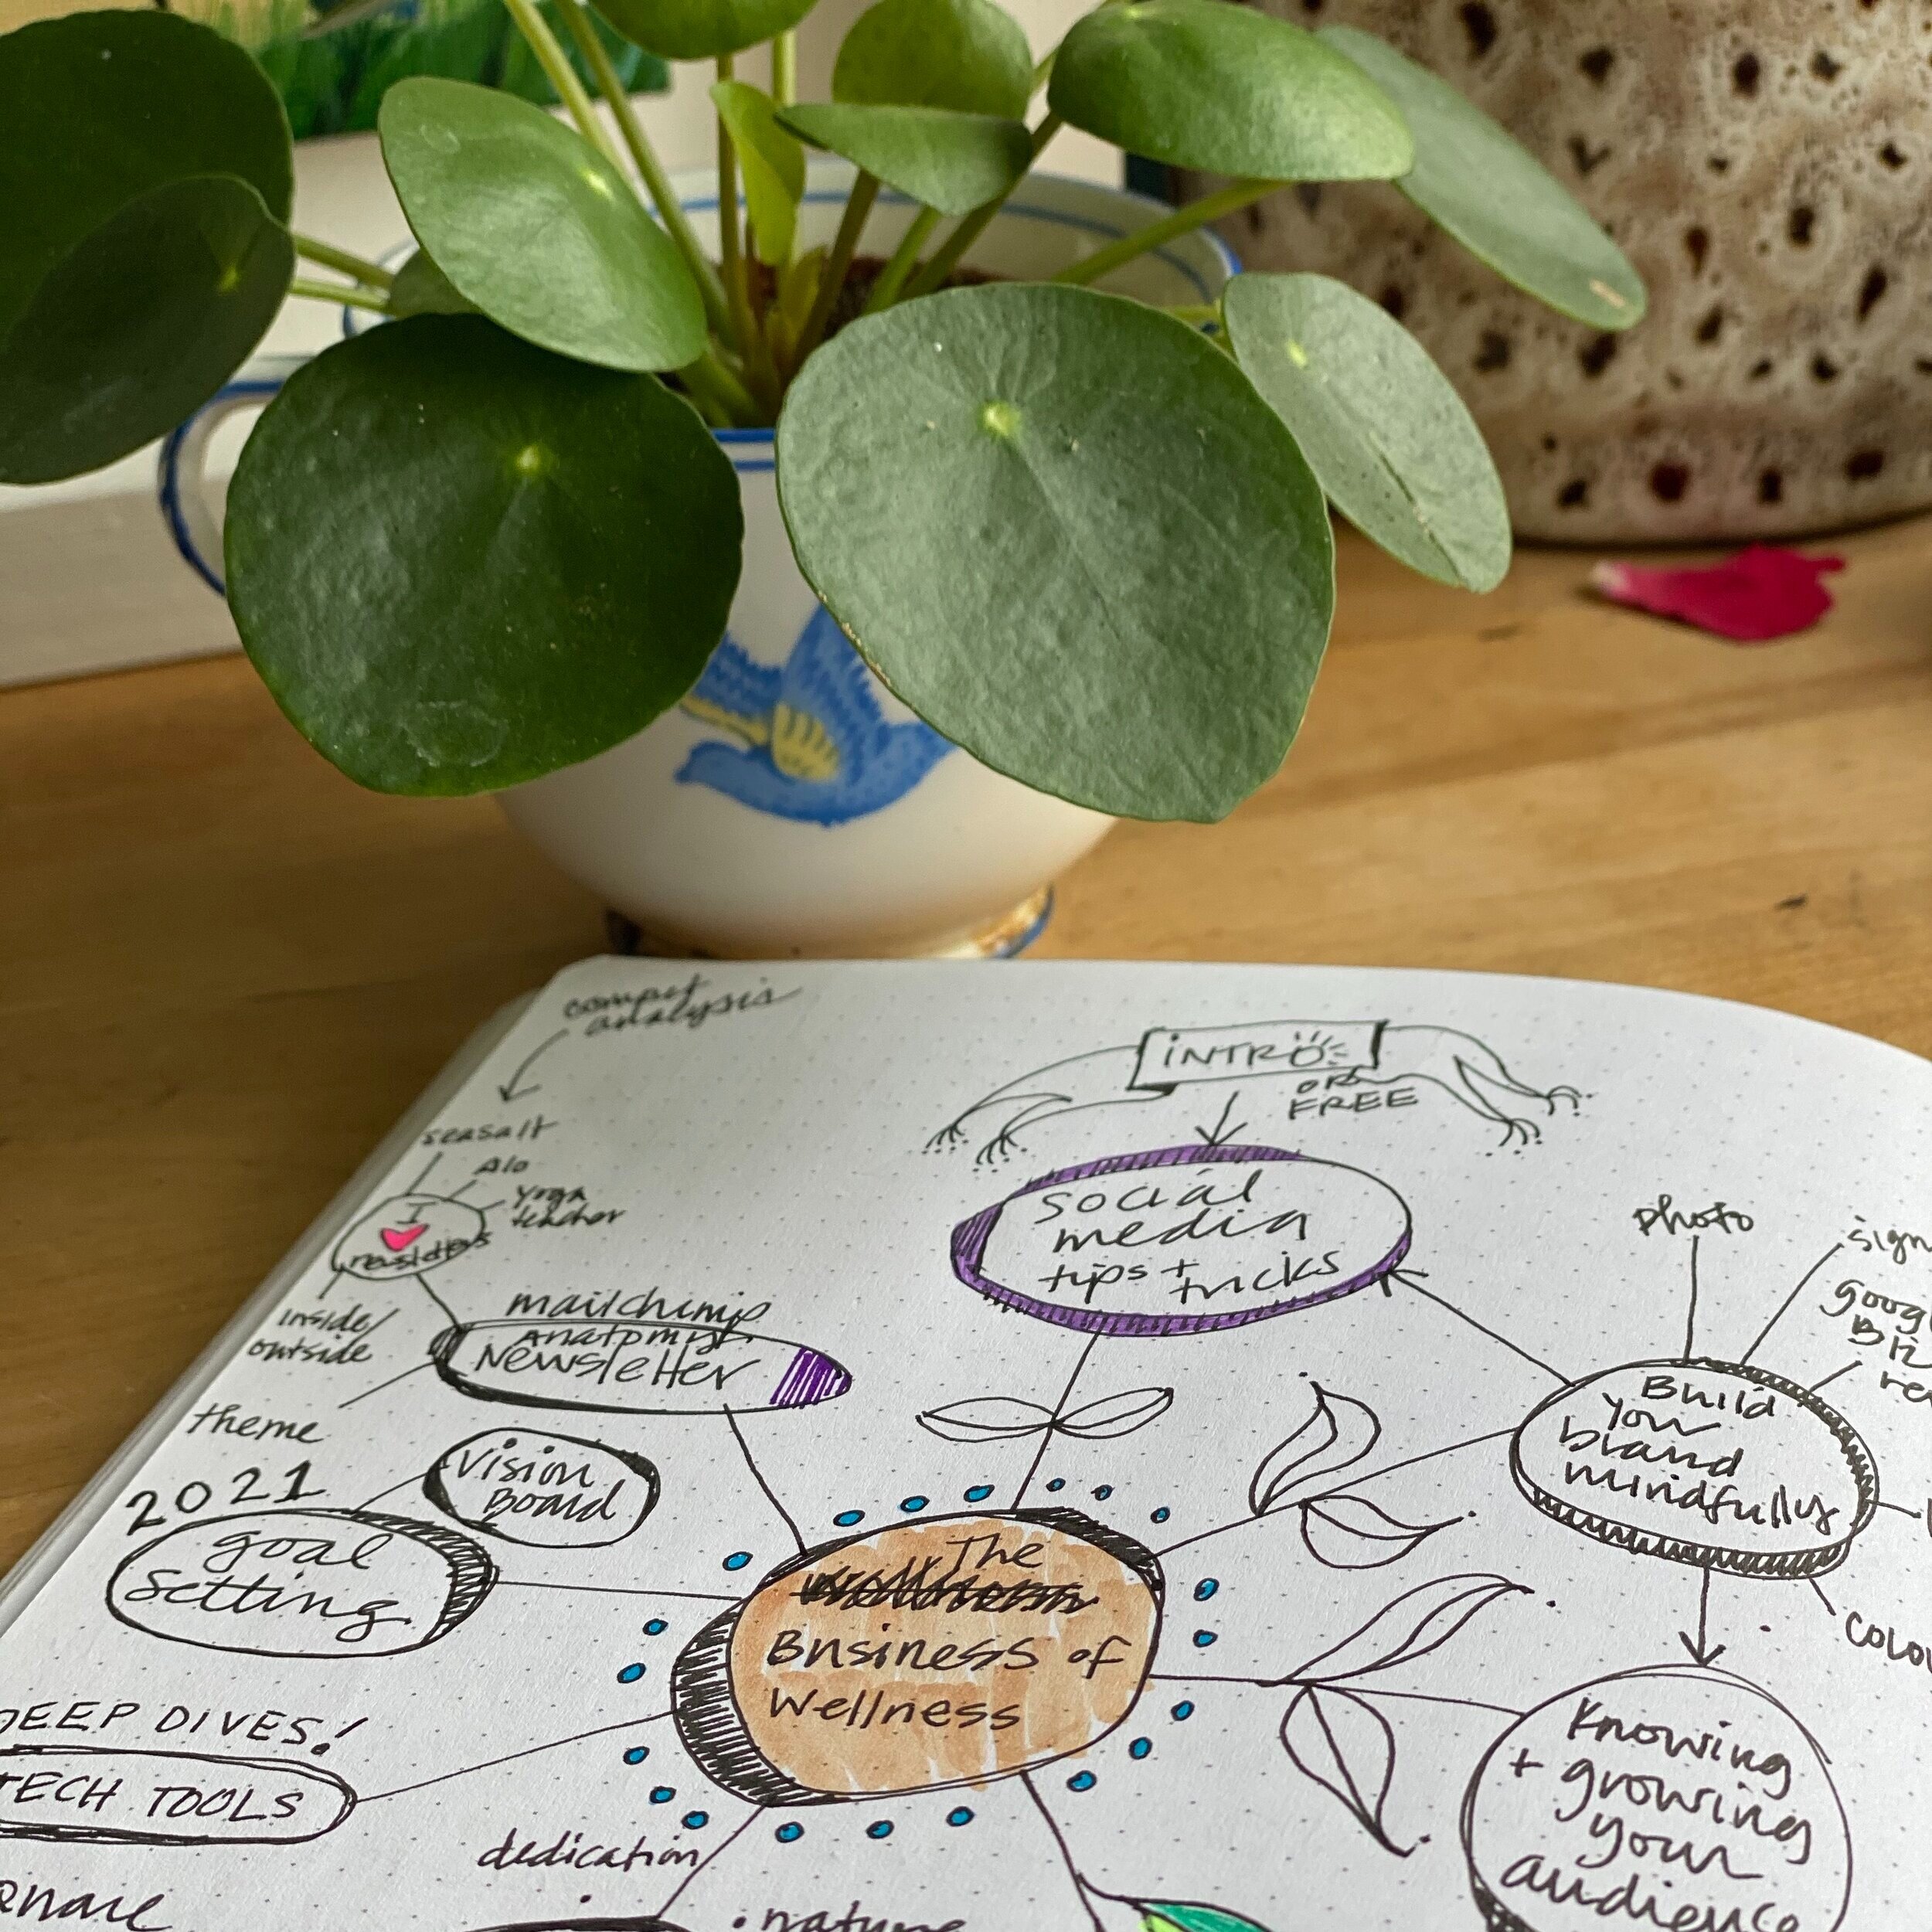 compet
analysis
INTRO
OR
FREE
seasalt
Alo
yoga
teacher
I
newsletters
inside/
outside
theme
social
media
tips + tricks
photo
mailchimp
anatomy
Newsletter
Build
your
brand
mindfully
Vision
Board
2021
goal
setting
The
Business of
Wellness
Knowing
+ growing
your
audience
DEEP DIVES!
TECH TOOLS
dedication
nature